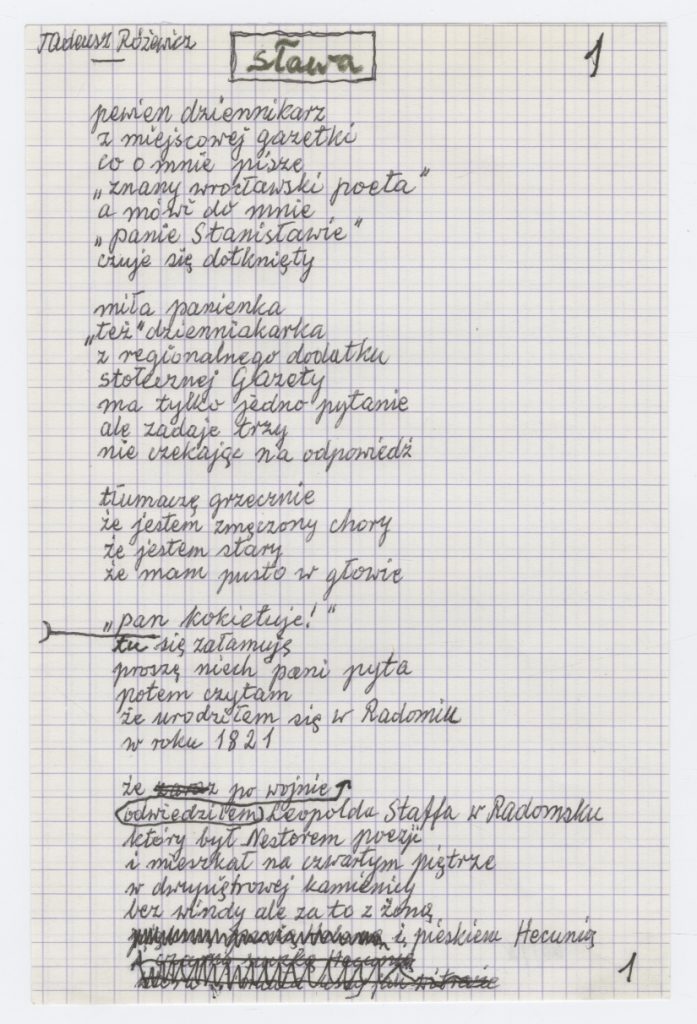 Tadeusz Różewicz
sława
1
pewien dziennikarz
z miejscowej gazetki
co o mnie pisze
„znany wrocławski poeta"
a mówi do mnie
„panie Stanisławie"
czuje się dotknięty
miła panienka
„też" dzienniakarka
z regionalnego dodatku
stołecznej Gazety
ma tylko jedno pytanie
ale zadaje trzy
nie czekając na odpowiedź
tłumaczę grzecznie
że jestem zmęczony chory
że jestem stary
że mam pusto w głowie
„pan kokietuje!"
tu się załamuję
proszę niech pani pyta
potem czytam
że urodziłem się w Radomiu
w roku 1821
że zaraz po wojnie
odwiedziłem Leopolda Staffa w Radomsku
który był Nestorem poezji
i mieszkał na czwartym piętrze
w dwupiętrowej kamienicy
bez windy ale za to z żoną
i pieskiem Hecunią
1